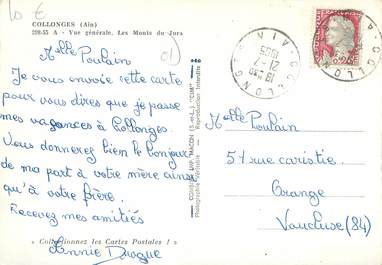 10 €
COLLONGES (Ain)
228-55 A - Vue générale. Les Monts du Jura
Melle Poulain
Je vous envoie cette carte
pour vous dires que je passe
mes vagances à Collonges.
Vous donnerez bien le bonjour
de ma part à votre mère ainsi
qu'à votre frère.
Recevez mes amitiés
« Collectionnez les Cartes Postales ! »
Annie
01
COMBIER IMP. MACON (S.-et-L.) "CIM"
Photographie Véritable - Reproduction Interdite
COLLONGES
AIN
21-7
1965
0,25
Melle Poulain
57 rue caristie
Orange
Vaucluse (84)